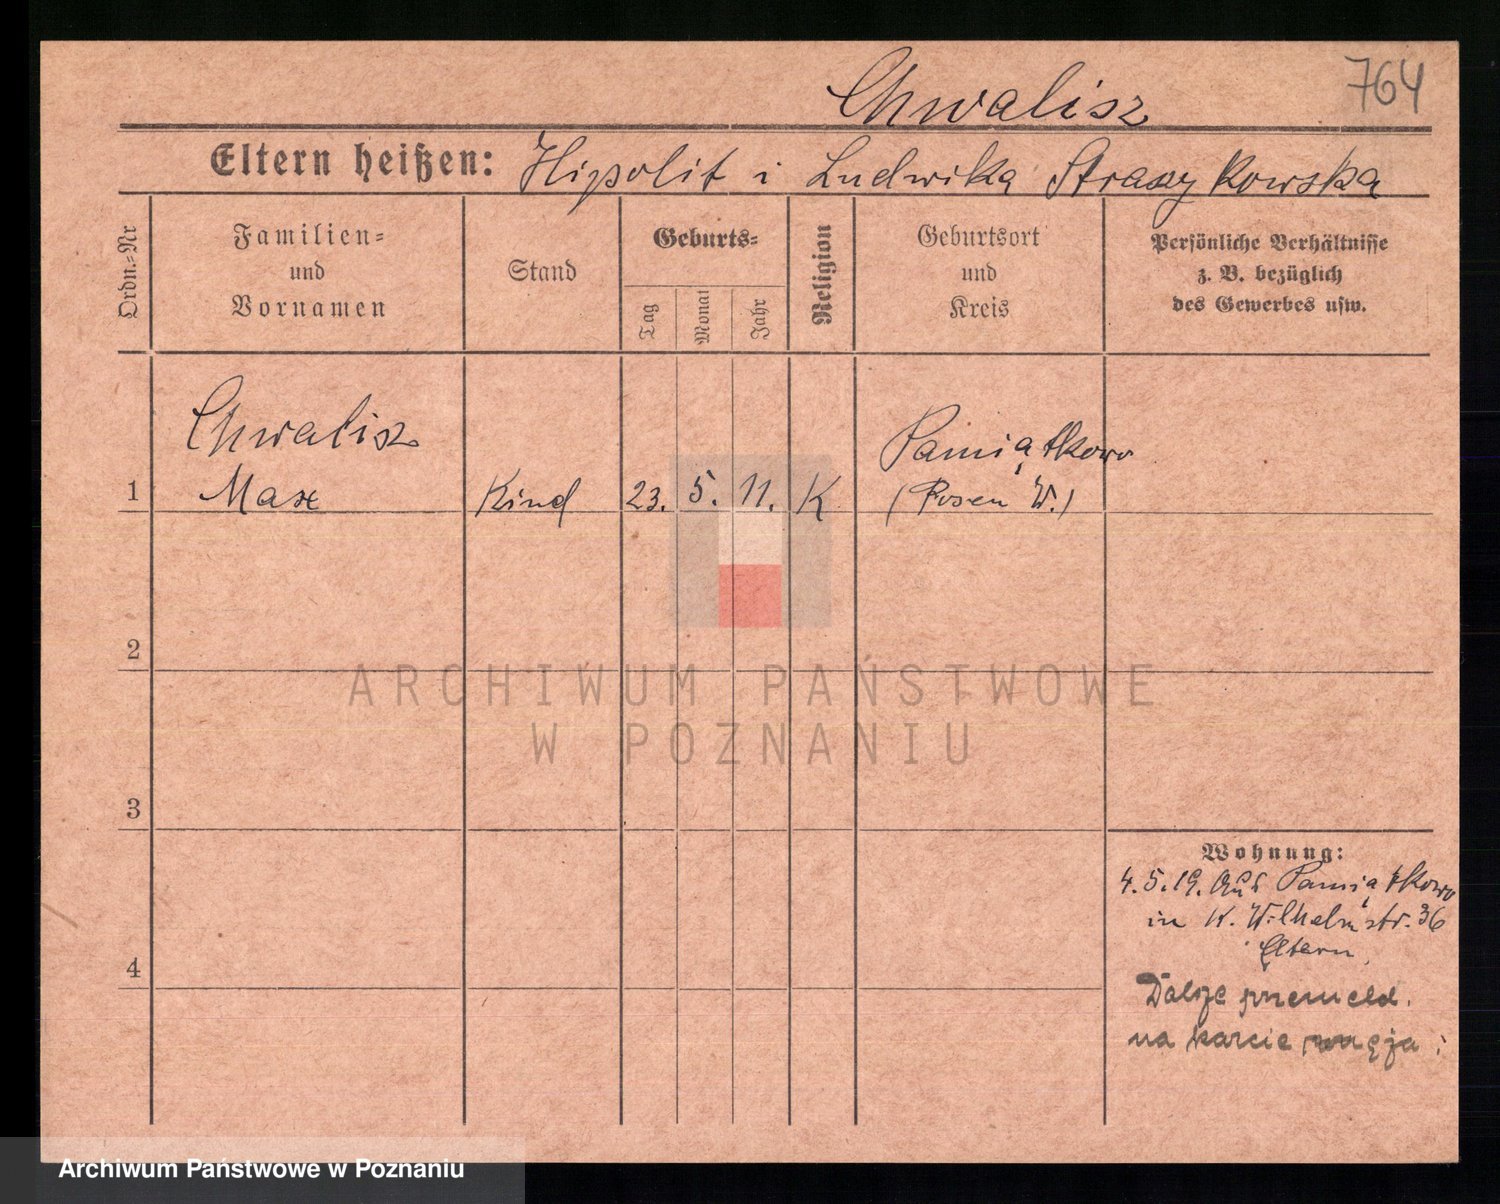 764
Chwalisz
Eltern heißen: Hipolit i Ludwika Straszykowska
Ordn.-Nr
Familien-
und
Vornamen
Stand
Geburts-
Tag
Monat
Jahr
Religion
Geburtsort
und
Kreis
Persönliche Verhältnisse
z. B. bezüglich
des Gewerbes usw.
1
Chwalisz
Max
Kind
23.
5.
11.
K
Pamiątkowo
(Posen W.)
2
3
4
Wohnung:
4.5.19. Aus Pamiątkowo
in K. Wilhelmstr. 36
Eltern
Dalsze przemeld.
na karcie
ARCHIWUM PAŃSTWOWE
W POZNANIU
Archiwum Państwowe w Poznaniu